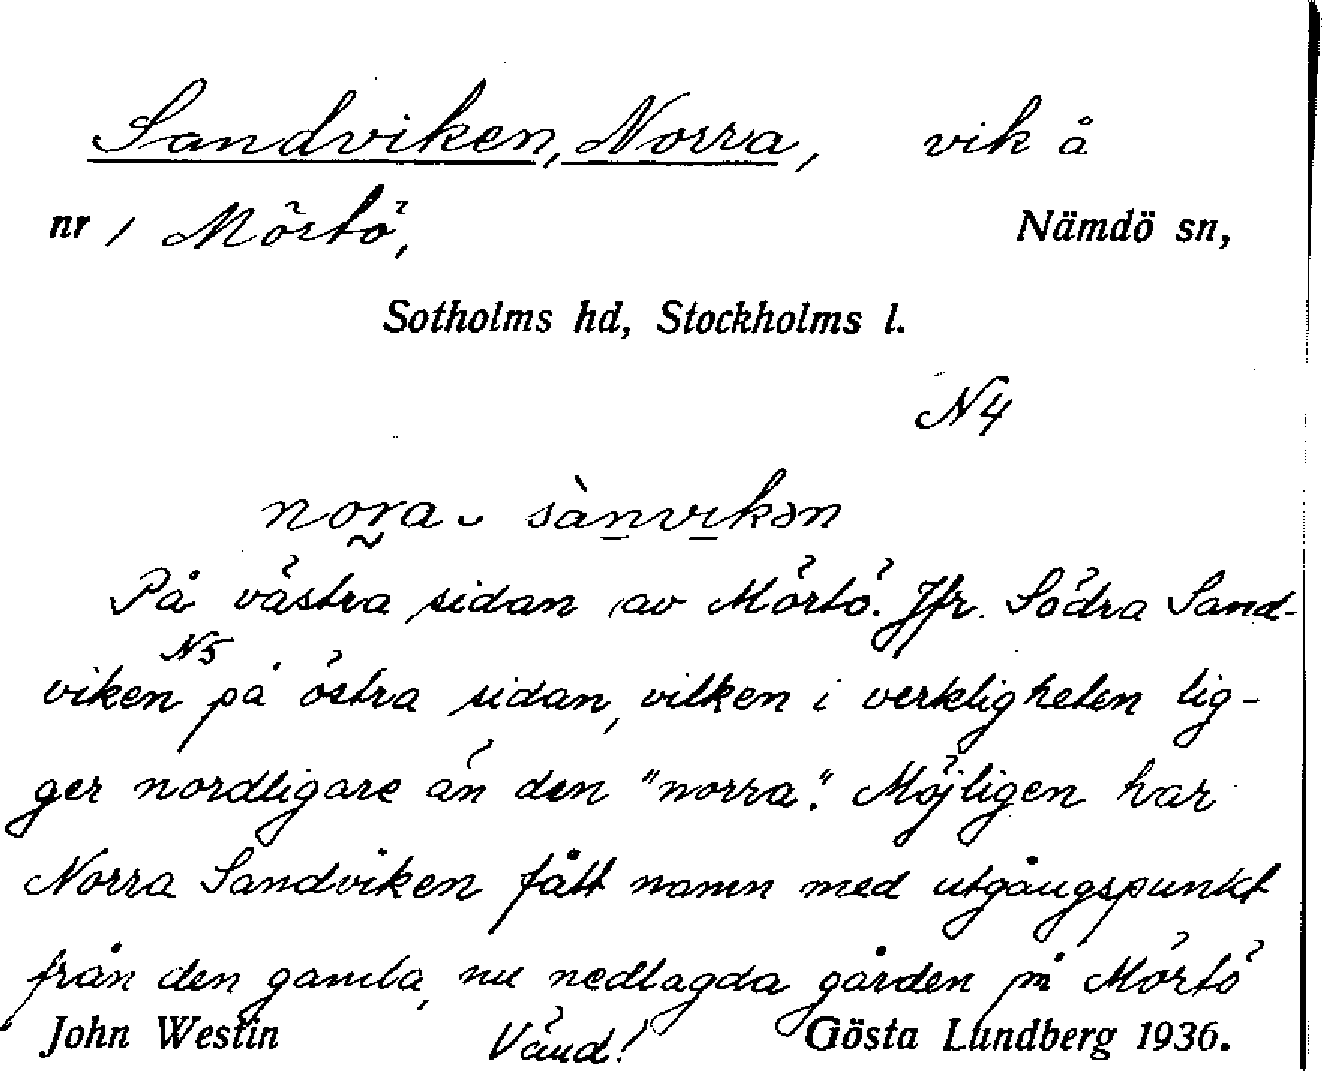 Sandviken, Norra, vik å
nr 1 Mörtö, Nämdö sn,
Sotholms hd, Stockholms l.
N4
nora ˘ sànvikən
På västra sidan av Mörtö. Jfr. Södra Sand-
N5
viken på östra sidan, vilken i verkligheten lig-
ger nordligare än den "norra". Möjligen har
Norra Sandviken fått namn med utgångspunkt
från den gamla, nu nedlagda gården på Mörtö
John Westin Vänd! Gösta Lundberg 1936.